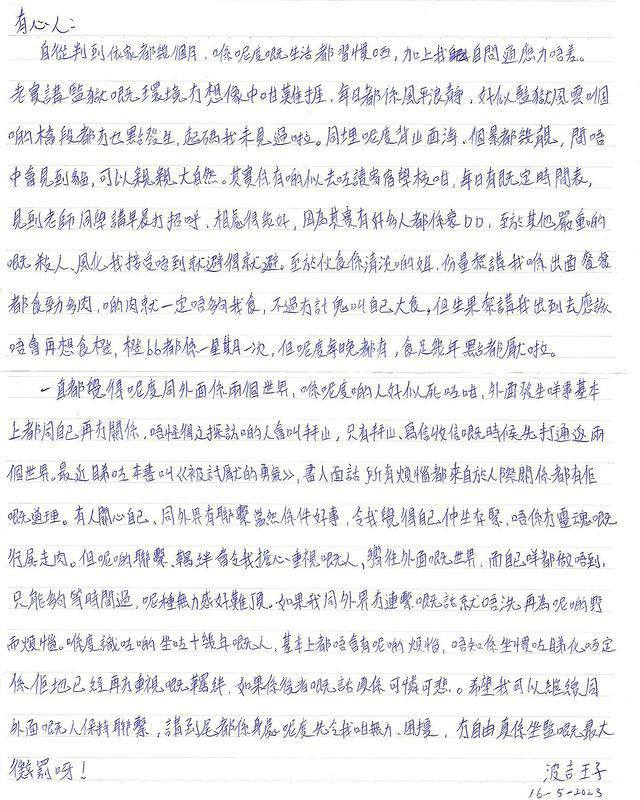 有心人：
自從判到依家都幾個月，喺呢度嘅生活都習慣晒，加上我自問適應力唔差。
老實講監獄嘅環境冇想像中咁難捱，每日都係風平浪靜，好似監獄風雲嗰
啲橋段都冇乜點發生，起碼我未見過啦。同埋呢度背山面海，個景都幾靚，間唔
中會見到貓，可以親親大自然。其實係有啲似去咗讀寄宿學校咁，每日有既定時間表，
見到老師同學講早晨打招呼，相處得幾好，因為其實有好多人都係家DD，至於其他嚴重啲
嘅殺人、風化我接受唔到就避得就避。至於伙食係清淡啲嘅，份量黎講我喺出面餐餐
都食勁多肉，啲肉就一定唔夠我食，不過冇計鬼叫自己大食，但生果黎講我出到去應該
唔會再想食橙，橙bb都係一星期一次，但呢度每晚都有，食足幾年點都厭啦。
一直都覺得呢度同外面係兩個世界，喺呢度啲人好似死咗咁，外面發生咩事基本
上都同自己再冇關係，唔怪得之探訪啲人會叫拜山，只有拜山、寫信收信嘅時候先打通返兩
個世界。最近睇咗本書叫《被討厭的勇氣》，書入面話所有煩惱都來自於人際關係都有佢
嘅道理。有人關心自己、同外界有聯繫當然係件好事，令我覺得自己仲生存緊、唔係冇靈魂嘅
行屍走肉。但呢啲聯繫、羈絆會令我擔心重視嘅人、嚮往外面嘅世界，而自己咩都做唔到，
只能夠等時間過，呢種無力感好難頂。如果我同外界冇連繫嘅話就唔洗再為呢啲野
而煩惱。喺度識咗啲坐咗十幾年嘅人，基本上都唔會有呢啲煩惱，唔知係坐慣咗睇化咗定
係佢地已經再冇重視嘅羈絆，如果係後者嘅話真係可憐可悲。希望我可以繼續同
外面嘅人保持聯繫，講到尾都係身處呢度先令我咁無力、困擾，冇自由真係坐監嘅最大
懲罰呀！
波吉王子
16-5-2023